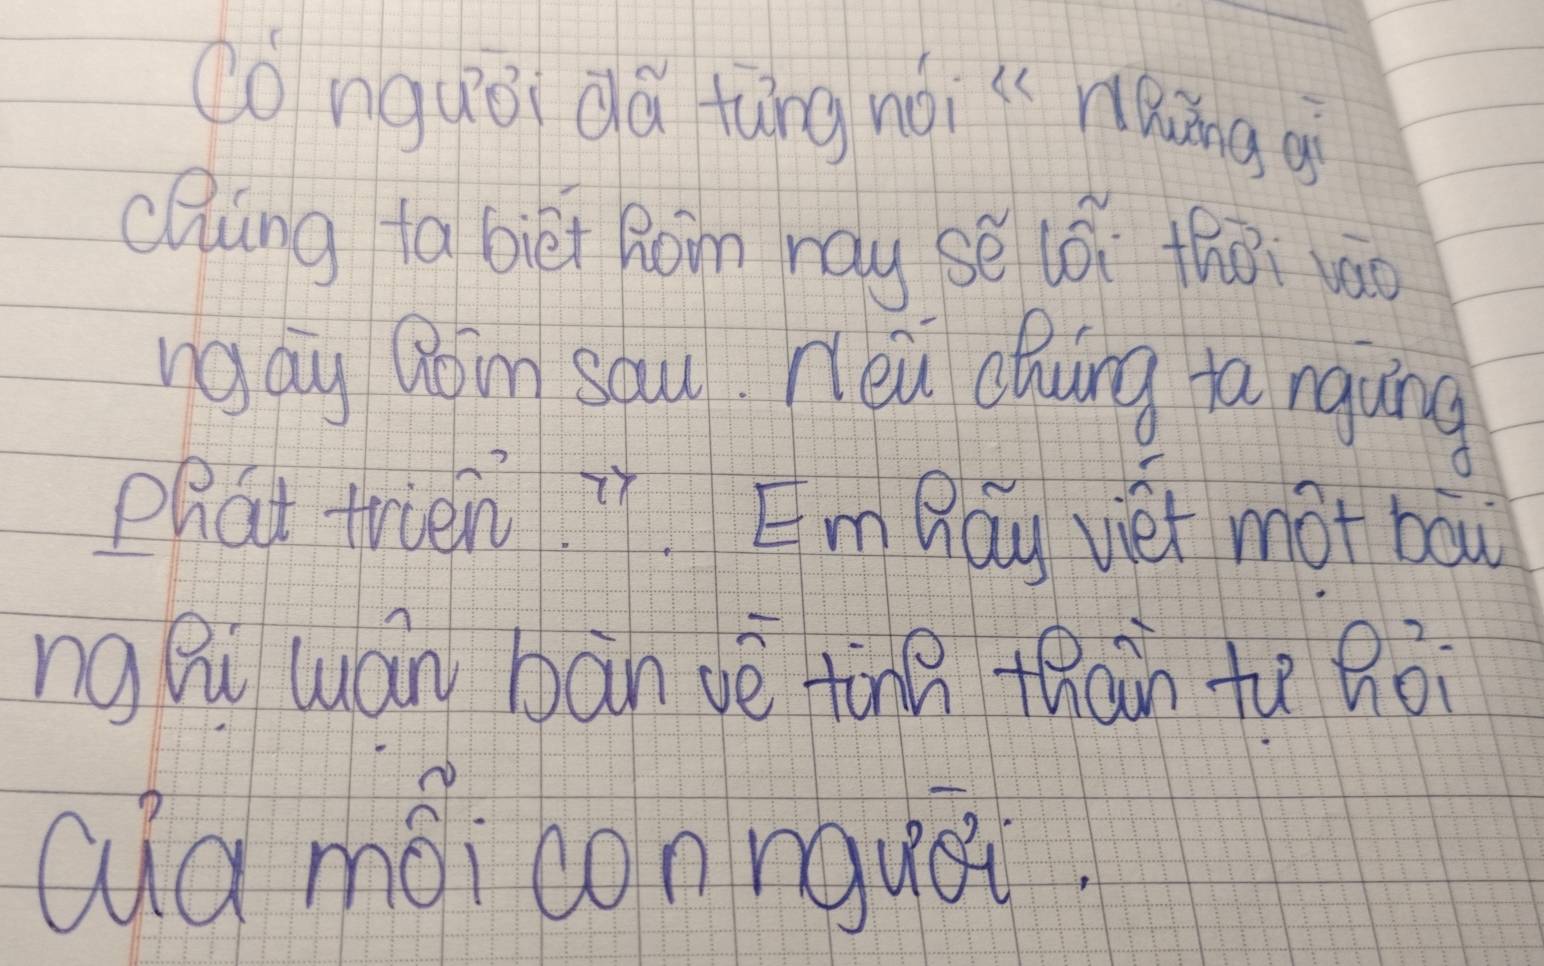 Có người đã từng nói “ Những gì
chúng ta biết hôm nay sẽ lỗi thời vào
ngày hôm sau. Nếu chúng ta ngừng
phát triển.”. Em hãy viết một bài
nghị luận bàn về tinh thần tự hỏi
của mỗi con người.